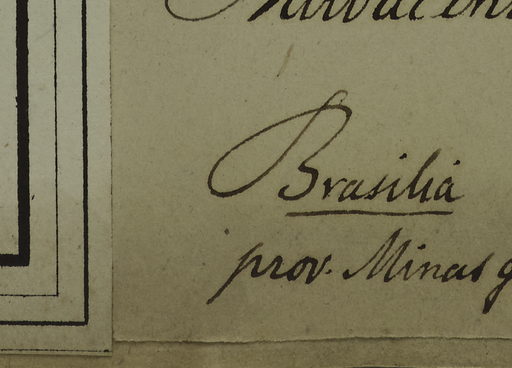 Brasilia
prov. Minas g